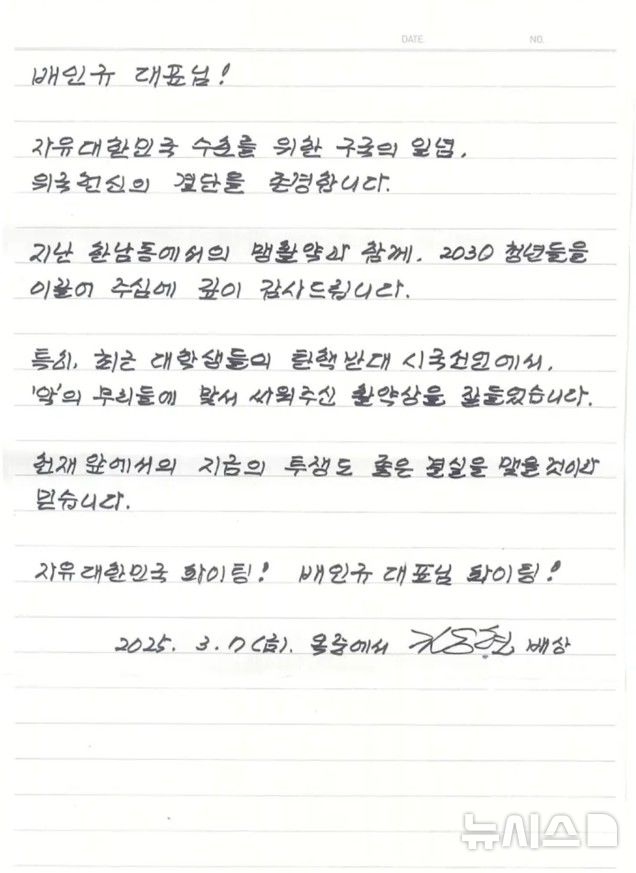 DATE. NO.
배인규 대표님!
자유대한민국 수호를 위한 구국의 일념,
위국헌신의 결단을 존경합니다.
지난 한남동에서의 맹활약과 함께, 2030 청년들을
이끌어 주심에 깊이 감사드립니다.
특히, 최근 대학생들의 탄핵반대 시국선언에서,
'악'의 무리들에 맞서 싸워주신 활약상을 잘들었습니다.
헌재 앞에서의 지금의 투쟁도 좋은 결실을 맺을 것이라
믿습니다.
자유대한민국 화이팅! 배인규 대표님 화이팅!
2025. 3. 7(금). 옥중에서 김용현 배상
뉴시스